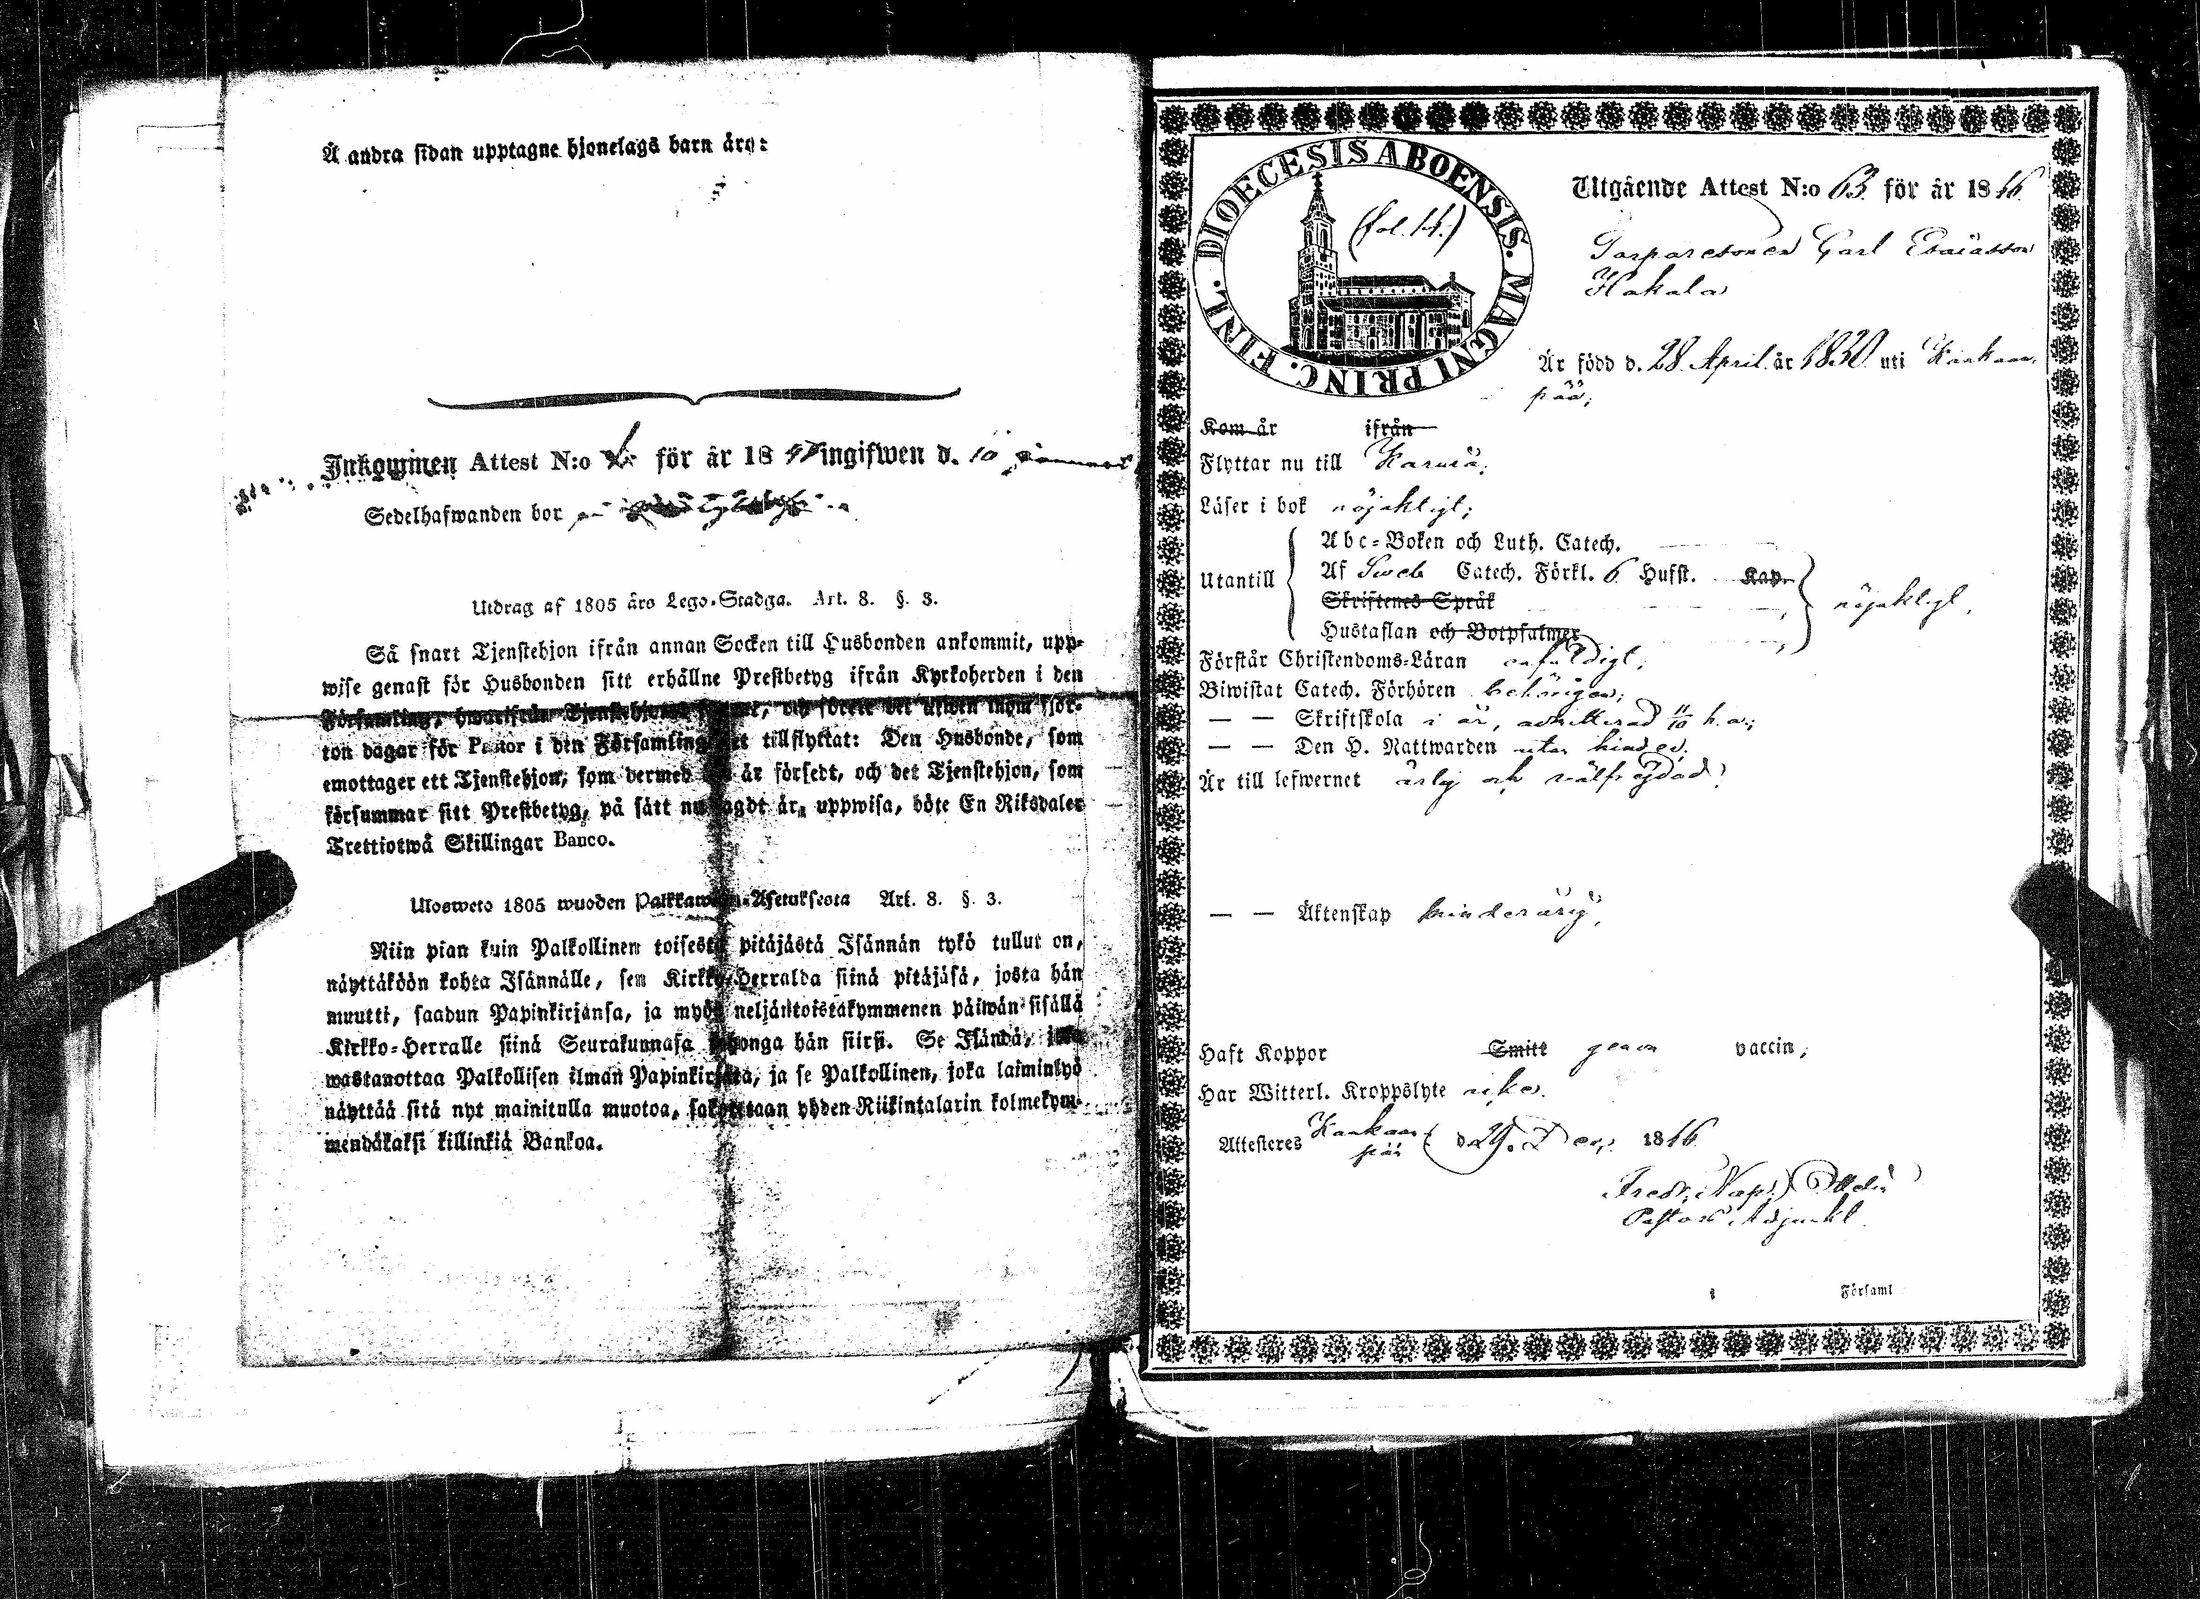 Å andra sidan upptagne hjonelags barn äro:
Inkommen Attest N:o för år 18 47 ingifwen d. 10
Sedelhafwanden bor på
Utdrag af 1805 års Lego-Stadga. Art. 8. §. 3.
Så snart Tjenstehjon ifrån annan Socken till Husbonden ankommit, upp-
wise genast för Husbonden sitt erhållne Prestbetyg ifrån Kyrkoherden i den
Församling, hwarifrån Tjenstehjonet, och förete det äfwen inom fjor-
ton dagar för Pastor i den Församling tillflyttat: Den Husbonde, som
emottager ett Tjenstehjon, som dermed är försedt, och det Tjenstehjon, som
försummar sitt Prestbetyg, på sätt nu sagdt är, uppwisa, böte En Riksdaler
Trettiotwå Skillingar Banco.
Ulosweto 1805 wuoden Asetuksesta Art. 8. §. 3.
Niin pian kuin Palkollinen toisesta pitäjästä Isännän tykö tullut on,
näyttäköön kohta Isännälle, sen Kirkko-Herralda siinä pitäjäsä, josta hän
muutti, saadun Papinkirjansa, ja myös neljäntoistakymmenen päiwän sisällä
Kirkko-Herralle siinä Seurakunnasa johonga hän siirsi. Se Isändä, joka
wastanottaa Palkollisen ilman Papinkirjata, ja se Palkollinen, joka laiminlyö
näyttää sitä nyt mainitulla muotoa, sakotetaan yhden Riikintalarin kolmekym-
mendäkaksi killinkiä Bankoa.
DIOECESIS ABOENSIS. MAGNI PRINC. FINL.
(fol. 14.)
Utgående Attest N:o 63 för år 1846
Torparesonen Carl Esaiasson
Hakala
Är född d. 28. April år 1830 uti Kankaan
pää;
Kom år ifrån
Flyttar nu till Karvia;
Läser i bok nöjaktigt;
Utantill
Abc-Boken och Luth. Catech.
Af Sweb Catech. Förkl. 6 Hufst. Kap.
Skriftenes Språk
Hustaflan och Botpsalmer
nöjaktigt,
Förstår Christendoms-Läran enfaldigt;
Biwistat Catech. Förhören behörigen;
— — Skriftskola i år, admitterad 11/10 h.a.;
— — Den H. Nattwarden utan hinder.
Är till lefwernet ärlig och välfrejdad;
— — Äktenskap minderårig,
Haft Koppor Smitt genom vaccin;
Har Witterl. Kroppslyte icke.
Attesteres Kankaan
pää d. 29. Dec. 1846
Fredr. Nap.
Pastors Adjunkt
Församl